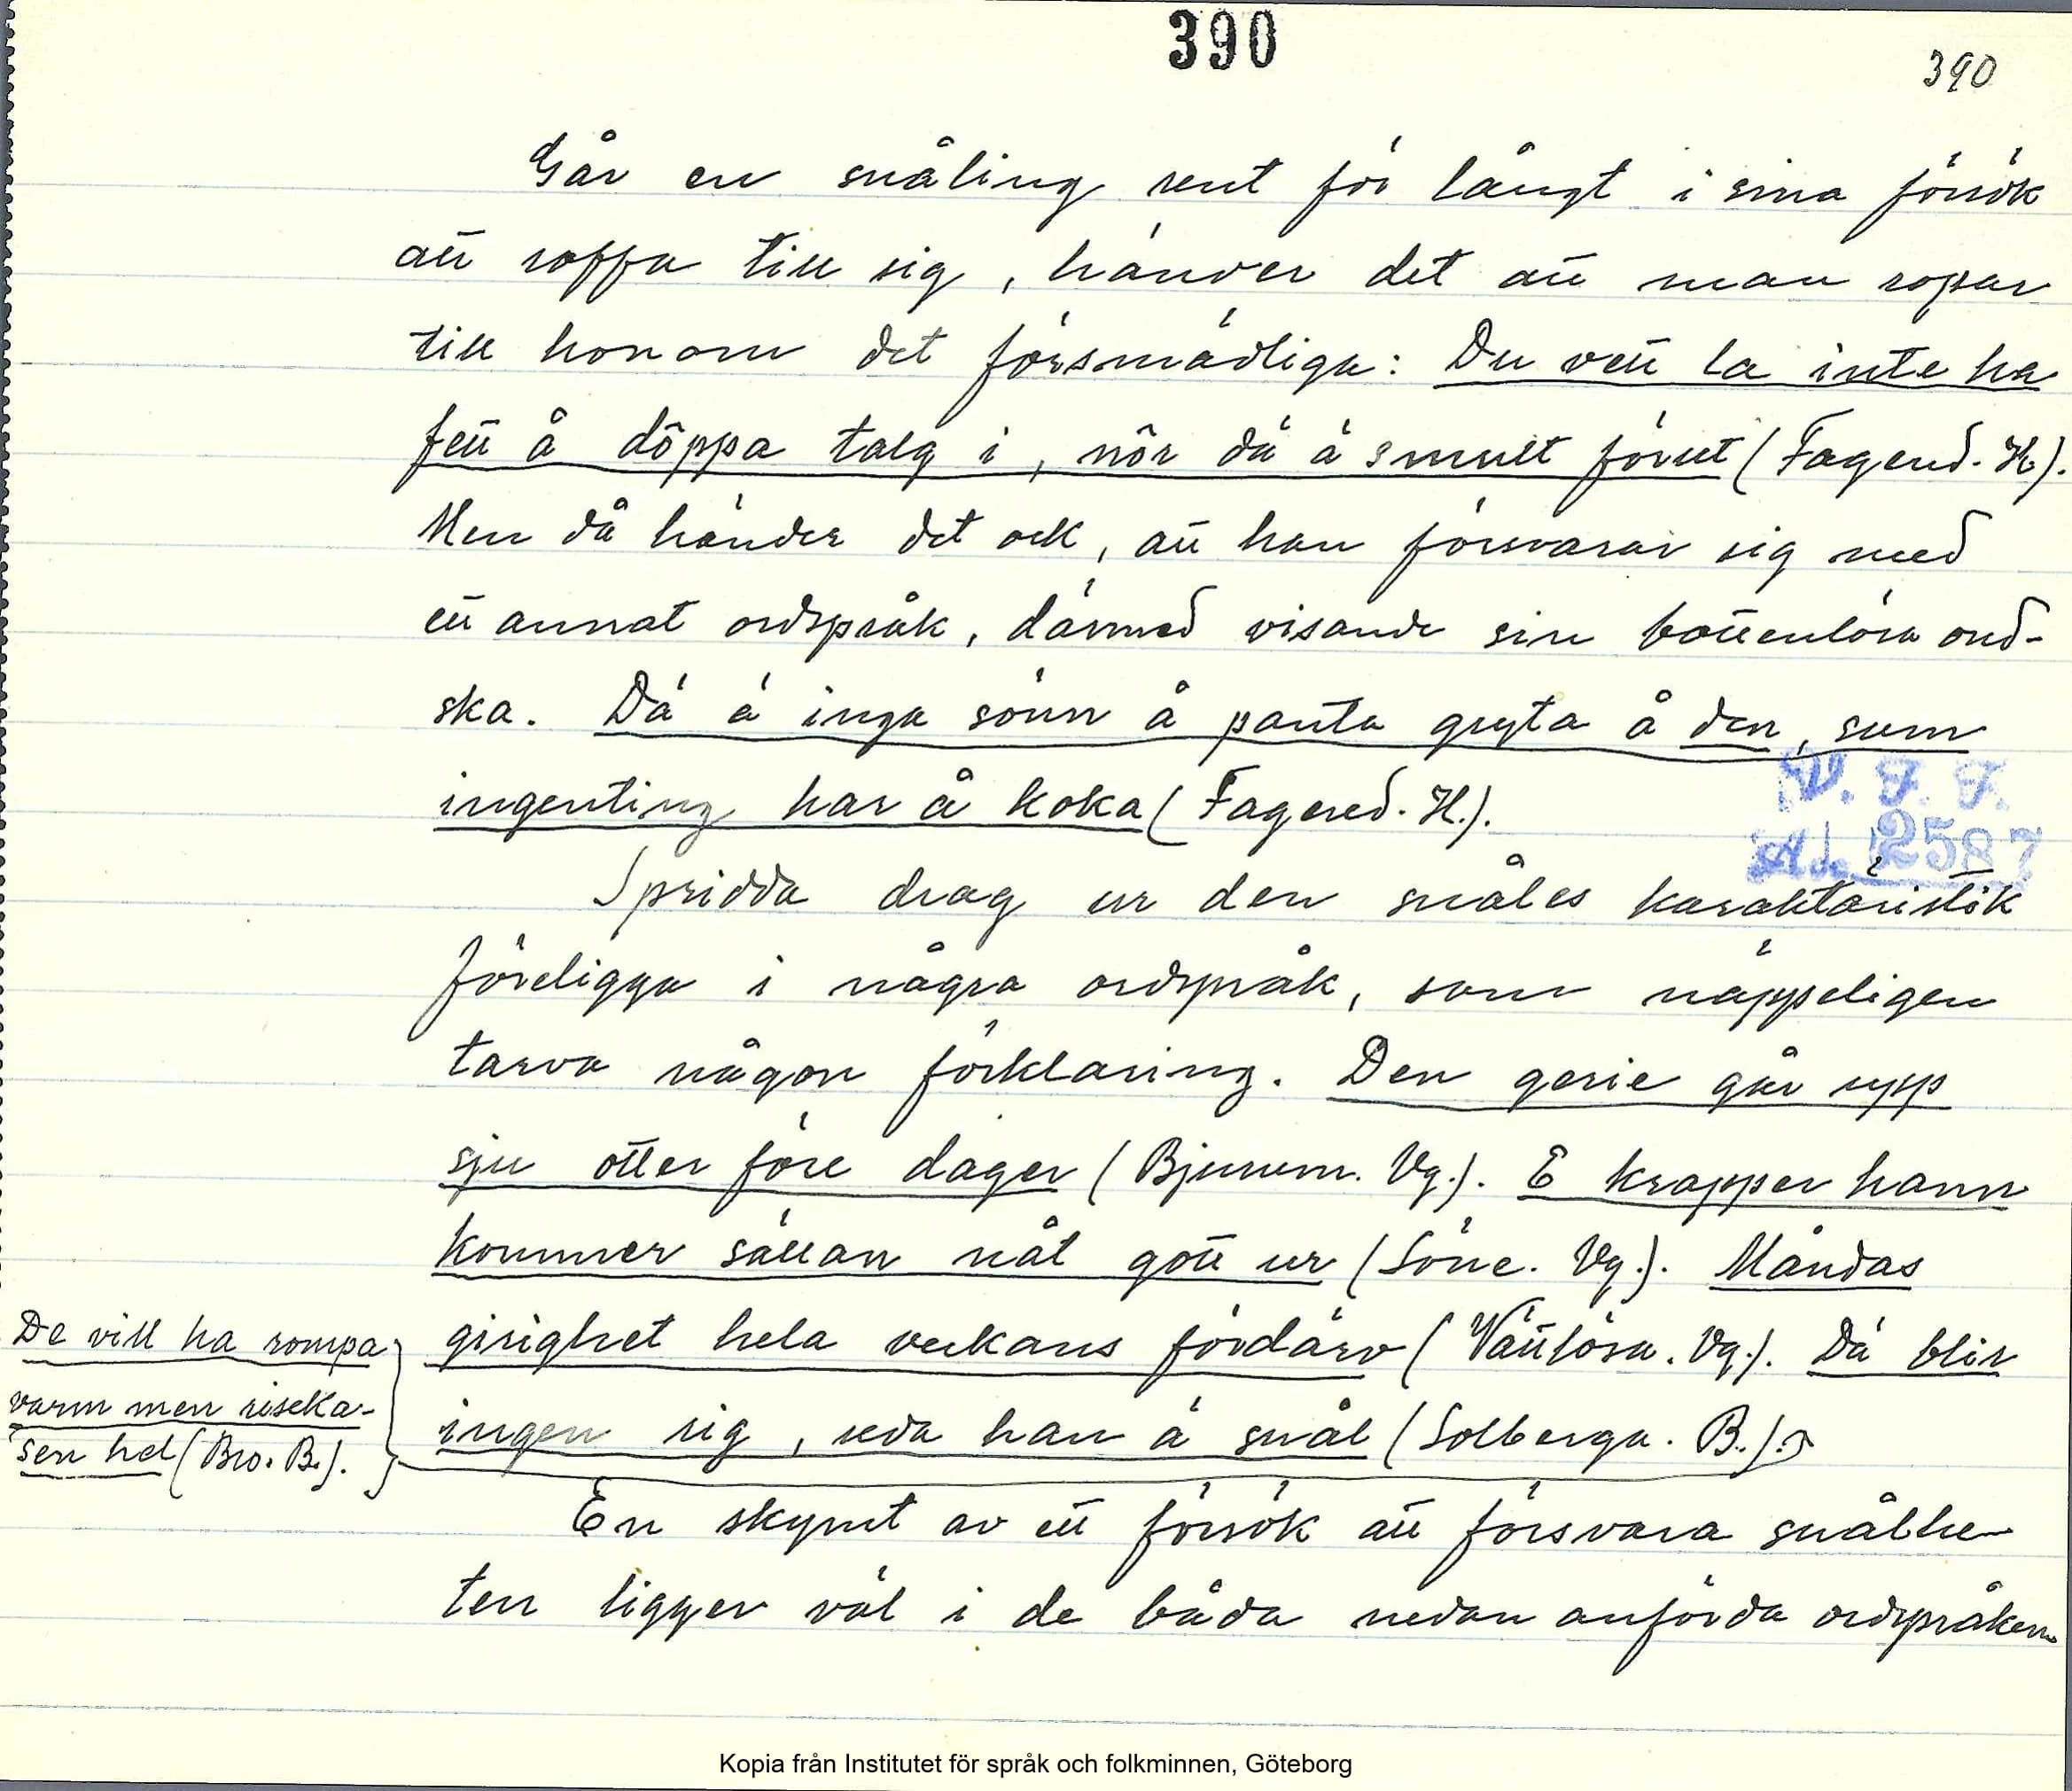 390
390
Går en snåling rent för långt i sina försök
att roffa till sig, händer det att man ropar
till honom det försmädliga: Du vett la inte ha
fett å döppa talg i, nör dä ä smult förut (Fagered. H.).
Men då händer det ock, att han försvarar sig med
ett annat ordspråk, därmed visande sin bottenlösa ond-
ska. Dä ä inga sönn å panta gryta å den, sum
ingenting har å koka (Fagered. H.).
V. F. F.
2587
Spridda drag ur den snåles karaktäristik
föreligga i några ordspråk, som näppeligen
tarva någon förklaring. Den gerie går upp
sju otter före dager (Bjurum. Vg.). E krapper hann
kommer sällan nåt gott ur (Söne. Vg.). Måndas
girighet hela veckans fördärv (Vättlösa. Vg.). Dä blir
ingen rig, reda han ä snål (Solberga. B.).
De vill ha rompa
varm men riseka-
sen hel (Bro. B.).
En skymt av ett försök att försvara snålhe-
ten ligger väl i de båda nedan anförda ordspråken
Kopia från Institutet för språk och folkminnen, Göteborg